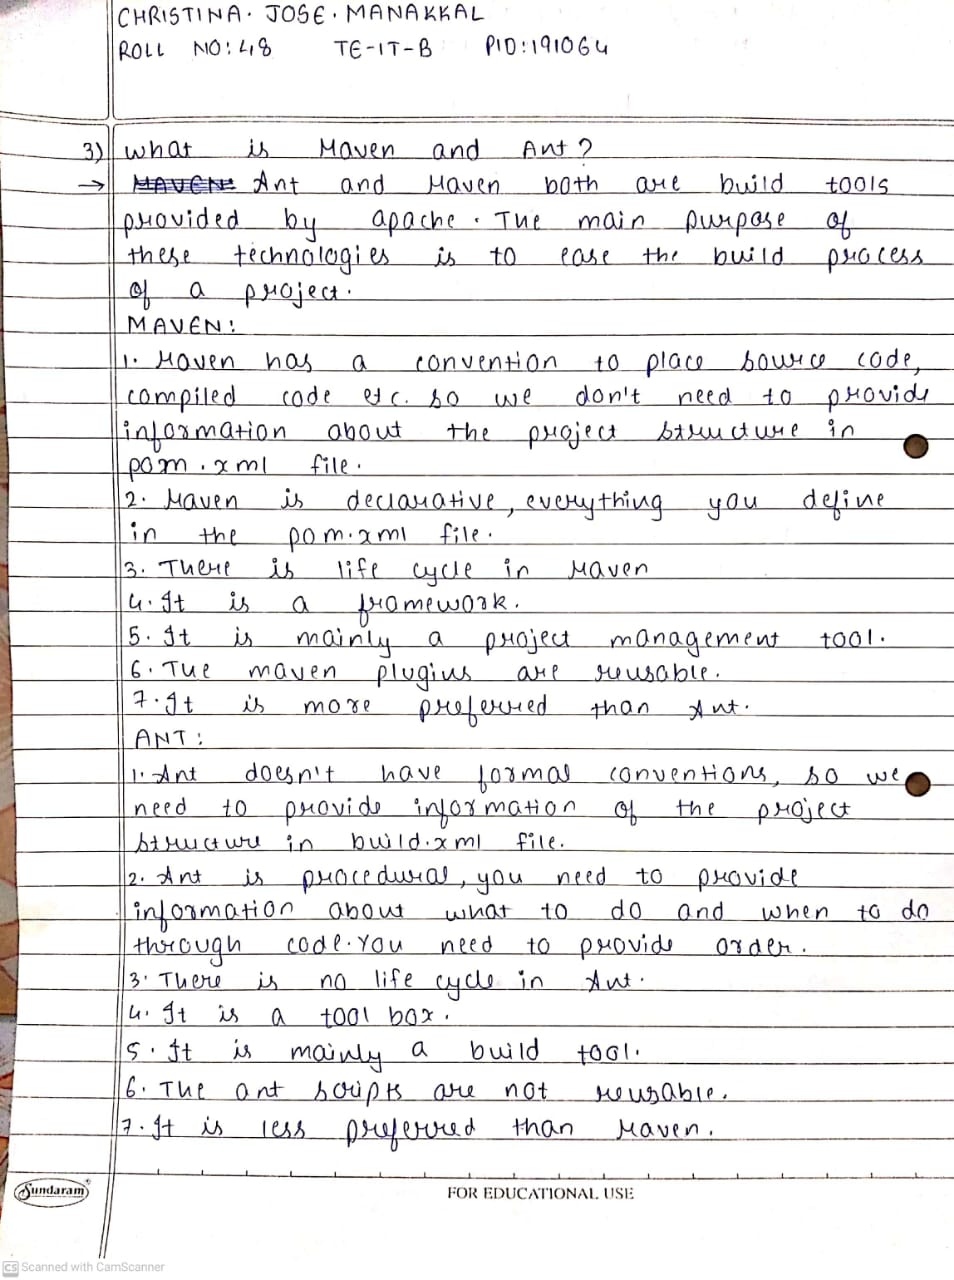 CHRISTINA. JOSE. MANAKKAL
ROLL NO: 48 TE-IT-B PID:191064
3) what is Maven and Ant?
→ MAVEN: Ant and Maven both are build tools
provided by apache. The main purpose of
these technologies is to ease the build process
of a project.
MAVEN:
1. Maven has a convention to place source code,
compiled code etc. so we don't need to provide
information about the project structure in
pom.xml file.
2. Maven is declarative, everything you define
in the pom.xml file.
3. There is life cycle in Maven
4. It is a framework.
5. It is mainly a project management tool.
6. The maven plugins are reusable.
7. It is more preferred than Ant.
ANT:
1. Ant doesn't have formal conventions, so we
need to provide information of the project
structure in build.xml file.
2. Ant is procedural, you need to provide
information about what to do and when to do
through code. You need to provide order.
3. There is no life cycle in Ant.
4. It is a tool box.
5. It is mainly a build tool.
6. The ant scripts are not reusable.
7. It is less preferred than Maven.
Sundaram FOR EDUCATIONAL USE
CS Scanned with CamScanner